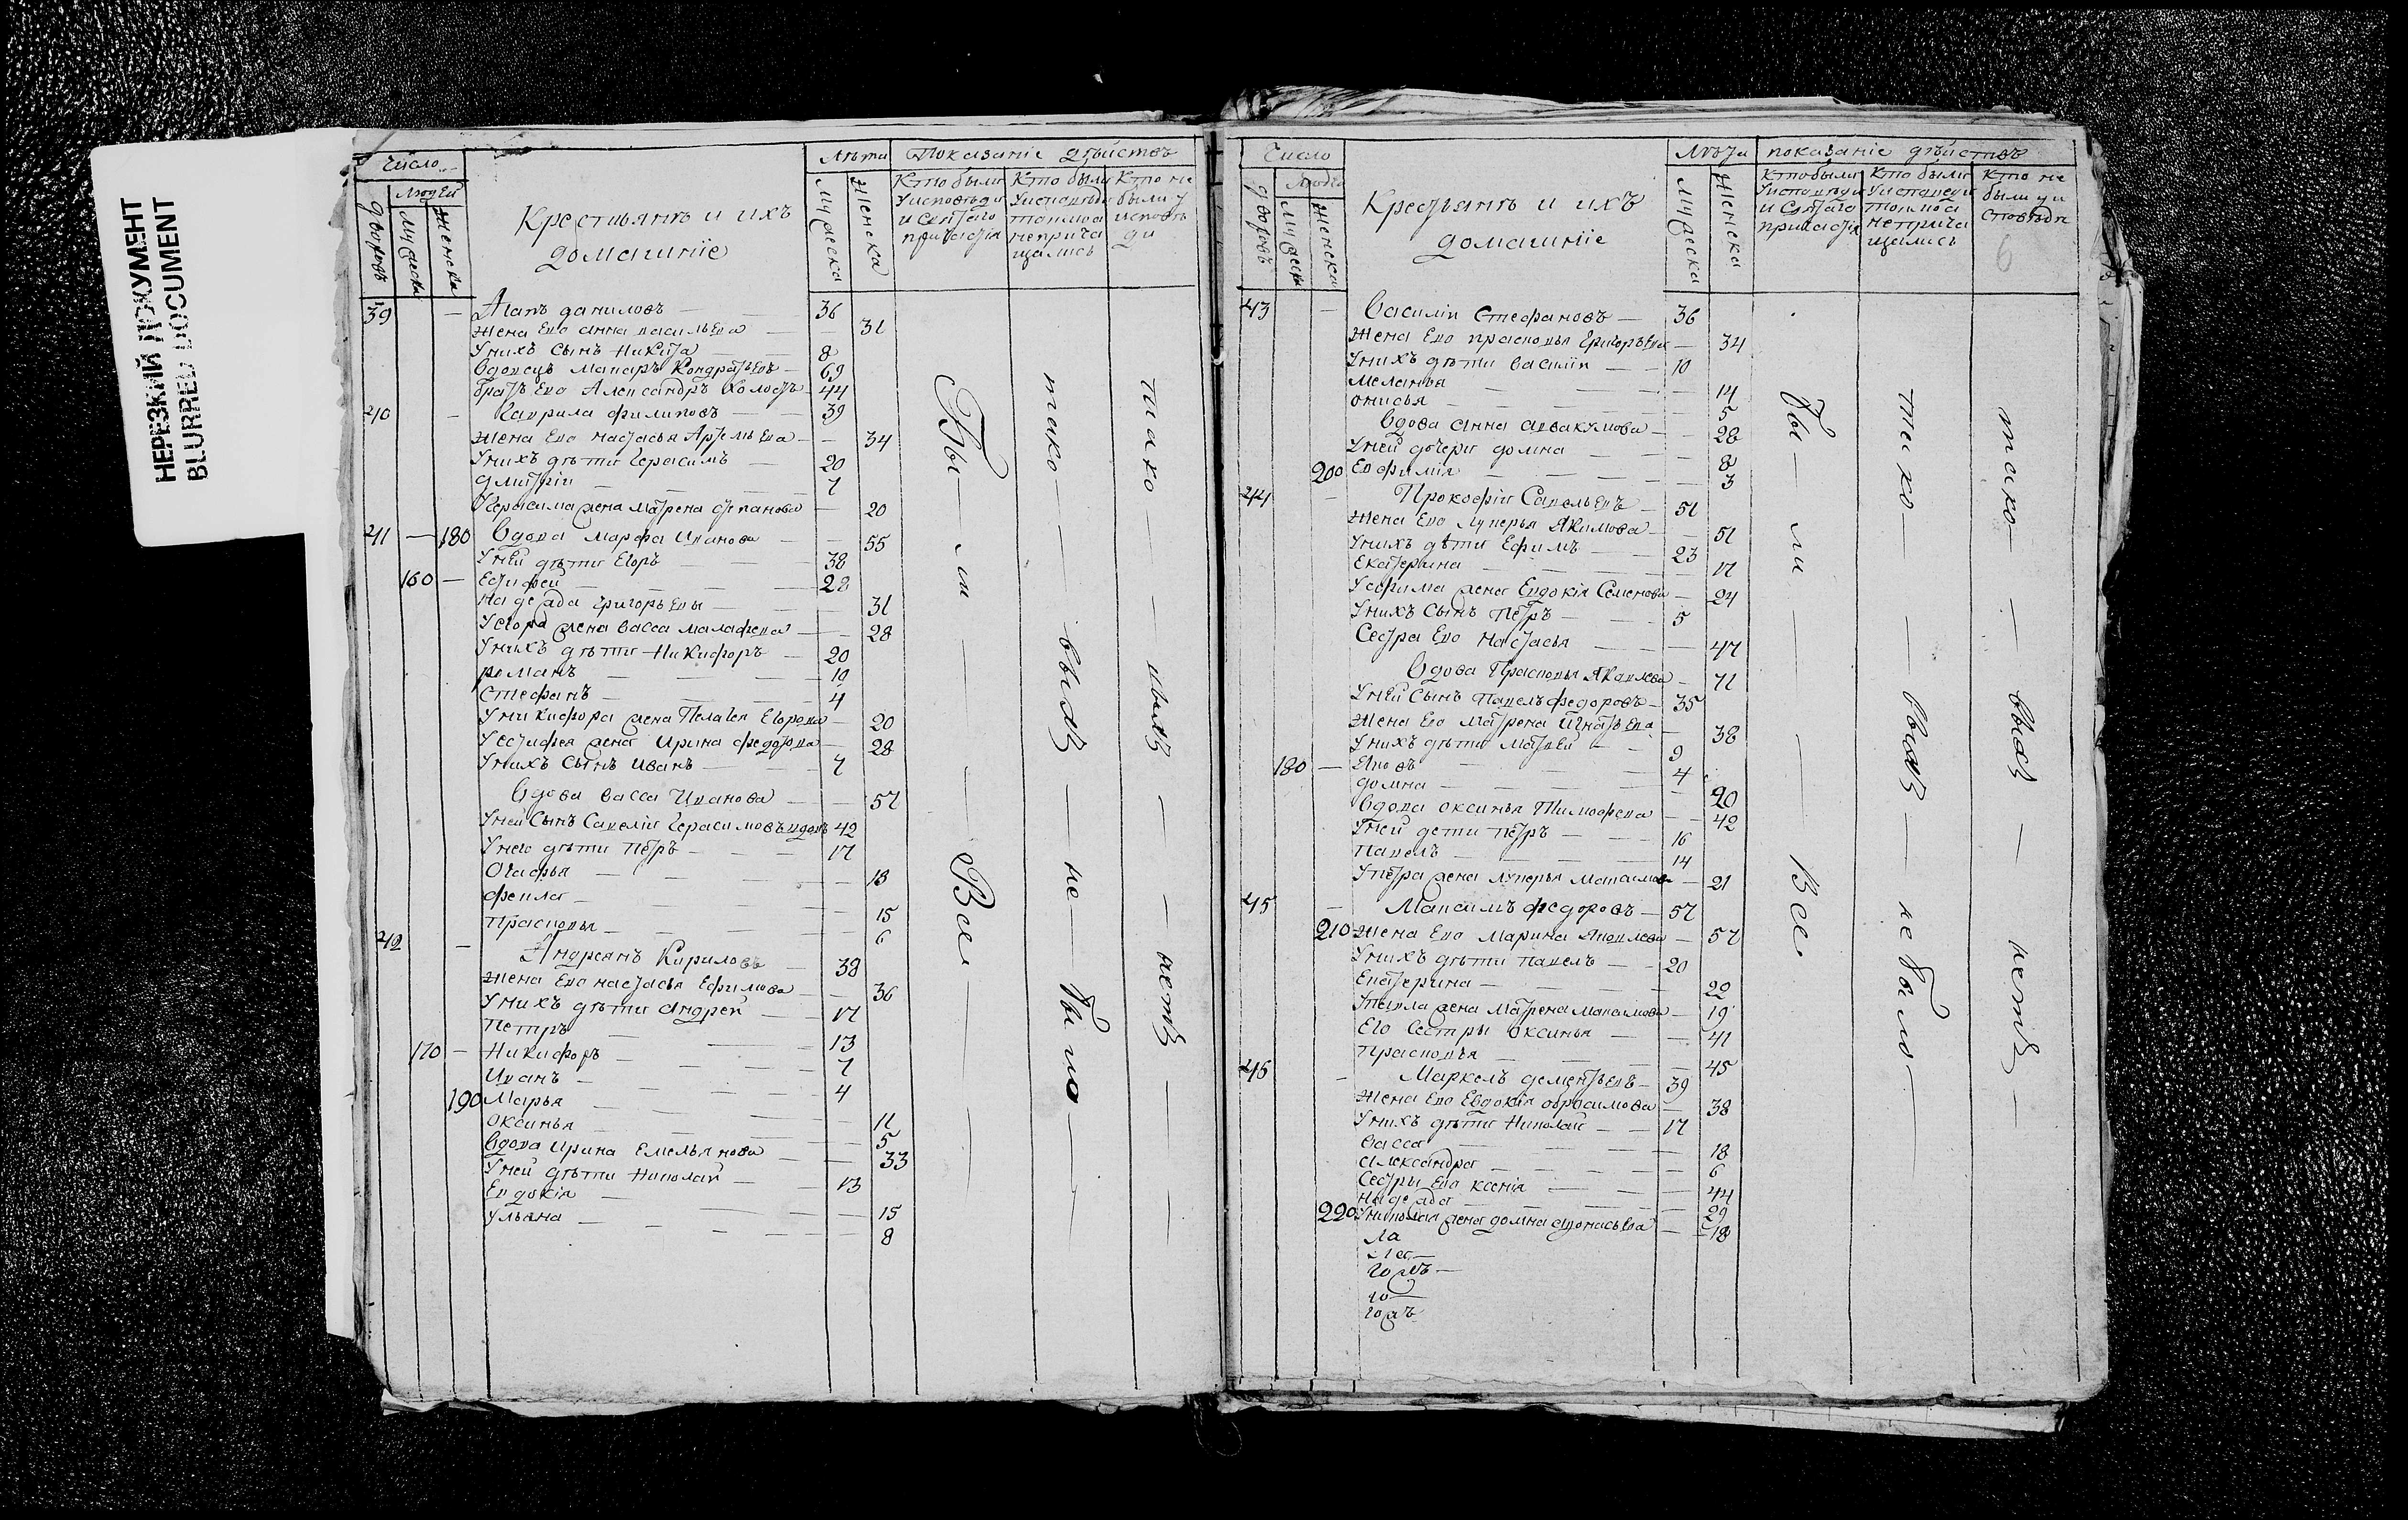 НЕРЕЗКИЙ ДОКУМЕНТ
BLURRED DOCUMENT
Число
Людей
дворовъ
мужеска
женска
Крестьянъ и ихъ
домашніе
Лѣта
мужеска
женска
Показаніе дѣйствъ
Кто были
у исповѣди
и святаго
причастія
Кто были
у исповѣди
токмо а
не прича
щались
Кто не
были у
исповѣ
ди
39 — Агапъ даниловъ — 36
жена Его анна васильева — 31
У нихъ сынъ Никита — 8
Вдовецъ Макаръ Кондратьевъ — 69
братъ Его Александръ Холостъ — 44
40 — Гаврила филиповъ — 39
жена Его настасья Артемьева — 34
У нихъ дѣти Герасимъ — 20
дмитріи — 7
У Герасима жена матрена степанова — 20
41 — 180 Вдова марфа Иванова — 55
У ней дѣти Егоръ — 38
160 — Естифей — 28
надежда григорьевы — 31
У егора жена васса малафеева — 28
У нихъ дѣти Никифоръ — 20
романъ — 10
стефанъ — 4
У никифора жена Пелагея Егорова — 20
У естифея жена Ирина федотова — 28
У нихъ сынъ Иванъ — 7
Вдова васса Иванова — 57
У ней сынъ Савелій Герасимовъ вдовъ 42
У него дѣти петръ — 17
Огафья — 18
фекла — 15
прасковья — 6
42 — Андреянъ Кириловъ — 38
жена Его настасья Ефимова — 36
У нихъ дѣти Андрей — 17
петръ — 13
170 — Никифоръ — 7
Иванъ — 4
190 Марья — 11
оксинья — 5
Вдова Ирина Емельянова — 33
У ней дѣти Николай — 13
Евдокія — 15
ульяна — 8
Бы — ли — Все
тако — выхъ — не — было
тако — выхъ — нетъ
Число
Людей
дворовъ
мужеска
женска
Крестьянъ и ихъ
домашніе
Лѣта
мужеска
женска
показаніе дѣйствъ
Кто были
У исповѣди
и святаго
причастія
Кто были
У исповеди
токмо а
не прича
щались
Кто не
были у и
споведи
6
43 — Василіи Стефановъ — 36
жена Его прасковья Григорьева — 34
У нихъ дѣти василіи — 10
меланья — 14
онисья — 5
Вдова анна аввакумова — 28
У ней дочери домна — 8
200 Евфимія — 3
44 — Прокофіи Савельевъ — 51
жена Его лукерья Якимова — 51
У нихъ дѣти Ефимъ — 23
Екатерина — 17
У ефима жена Евдокія Семенова — 24
У нихъ сынъ петръ — 5
Сестра Его настасья — 47
Вдова Прасковья Яковлева — 71
У ней сынъ Павелъ федоровъ — 35
жена Его матрена Игнатьева — 38
У нихъ дѣти матвей — 9
180 — — 4
домна — 20
вдова оксинья Тимофеева — 42
У ней дети петръ — 16
Павелъ — 14
У петра жена лукерья — 21
45 — Максимъ федоровъ — 57
210 жена Его марина Яковлева — 57
У нихъ дѣти павелъ — 20
Екатерина — 22
У павла жена матрена максимова — 19
Его сестры оксинья — 41
прасковья — 45
46 — Маркелъ дементьевъ — 39
жена Его Евдокія абросимова — 38
У нихъ дѣти Николай — 17
васса — 18
александра — 6
Сестры Его ксенія — 44
надежда — 29
220 У николая жена домна афонасьева — 18
ла
годъ —
го
годъ
Бы — ли — Все
тако — выхъ — не было
тако — выхъ — нетъ